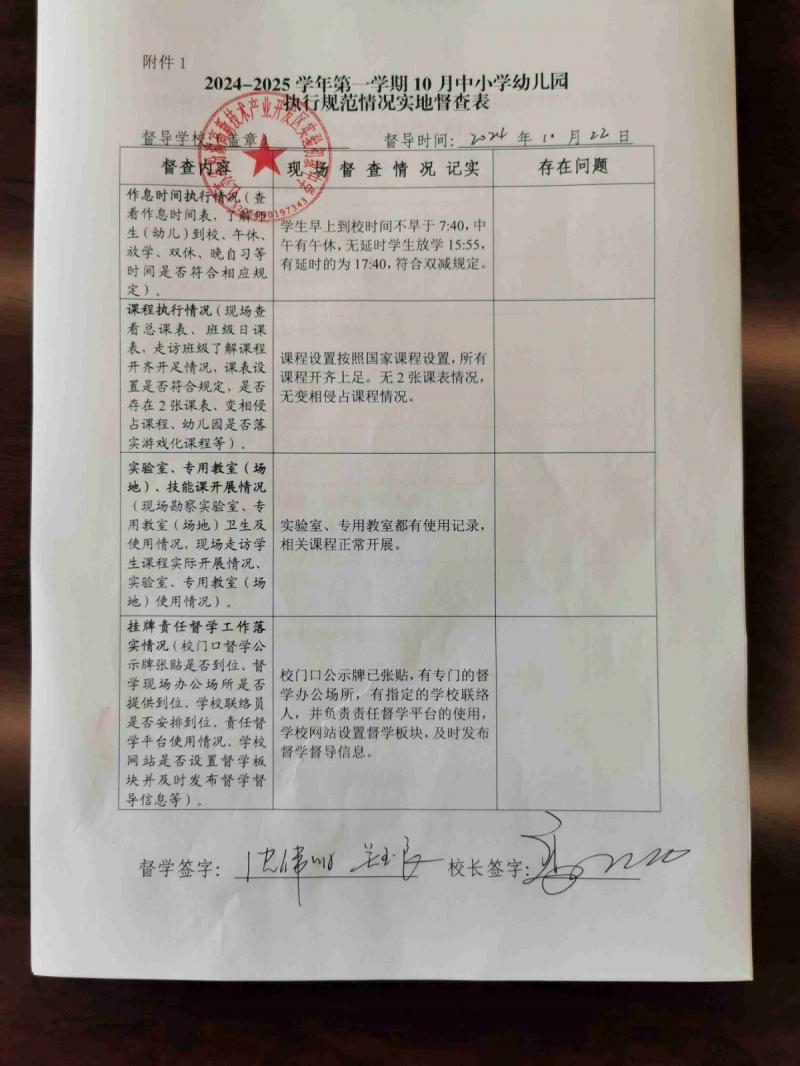 附件 1
2024-2025 学年第一学期 10 月中小学幼儿园
执行规范情况实地督查表
督导学校 盖章
督导时间: 2024 年 10 月 22 日
督查内容
现 场 督 查 情 况 记实
存在问题
作息时间执行情况(查
看作息时间表,了解师
生(幼儿)到校、午休、
放学、双休、晚自习等
时间是否符合相应规
定)。
学生早上到校时间不早于 7:40,中
午有午休,无延时学生放学 15:55,
有延时的为 17:40,符合双减规定。
课程执行情况(现场查
看总课表、班级日课
表,走访班级了解课程
开齐开足情况,课表设
置是否符合规定,是否
存在 2 张课表、变相侵
占课程、幼儿园是否落
实游戏化课程等)。
课程设置按照国家课程设置,所有
课程开齐上足。无 2 张课表情况,
无变相侵占课程情况。
实验室、专用教室(场
地)、技能课开展情况
(现场勘察实验室、专
用教室(场地)卫生及
使用情况,现场走访学
生课程实际开展情况、
实验室、专用教室(场
地)使用情况)。
实验室、专用教室都有使用记录,
相关课程正常开展。
挂牌责任督学工作落
实情况(校门口督学公
示牌张贴是否到位、督
学现场办公场所是否
提供到位、学校联络员
是否安排到位、责任督
学平台使用情况、学校
网站是否设置督学板
块并及时发布督学督
导信息等)。
校门口公示牌已张贴,有专门的督
学办公场所,有指定的学校联络
人,并负责责任督学平台的使用,
学校网站设置督学板块,及时发布
督学督导信息。
督学签字:
校长签字: